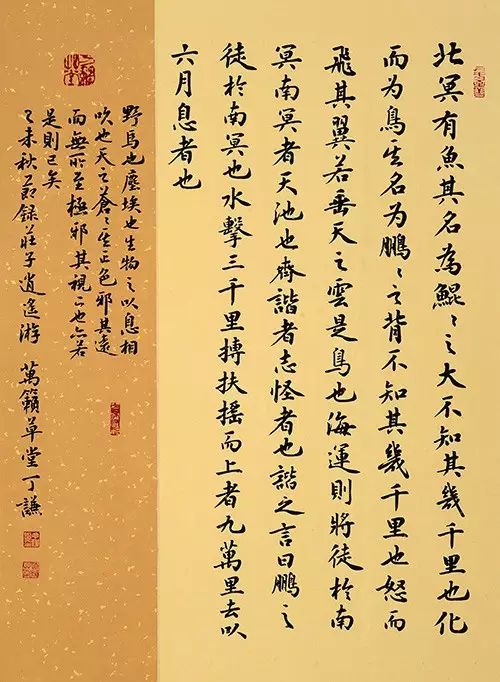 北冥有魚其名為鯤〻之大不知其幾千里也化
而为鳥其名为鵬〻之背不知其幾千里也怒而
飛其翼若垂天之雲是鳥也海運則將徒於南
冥南冥者天池也齊諧者志怪者也諧之言曰鵬之
徒於南冥也水擊三千里摶扶摇而上者九萬里去以
六月息者也
野馬也塵埃也生物之以息相
吹也天之蒼〻其正色邪其遠
而無所至極邪其視下也亦若
是則已矣
乙未秋節録莊子逍遥游 萬籟草堂丁謙